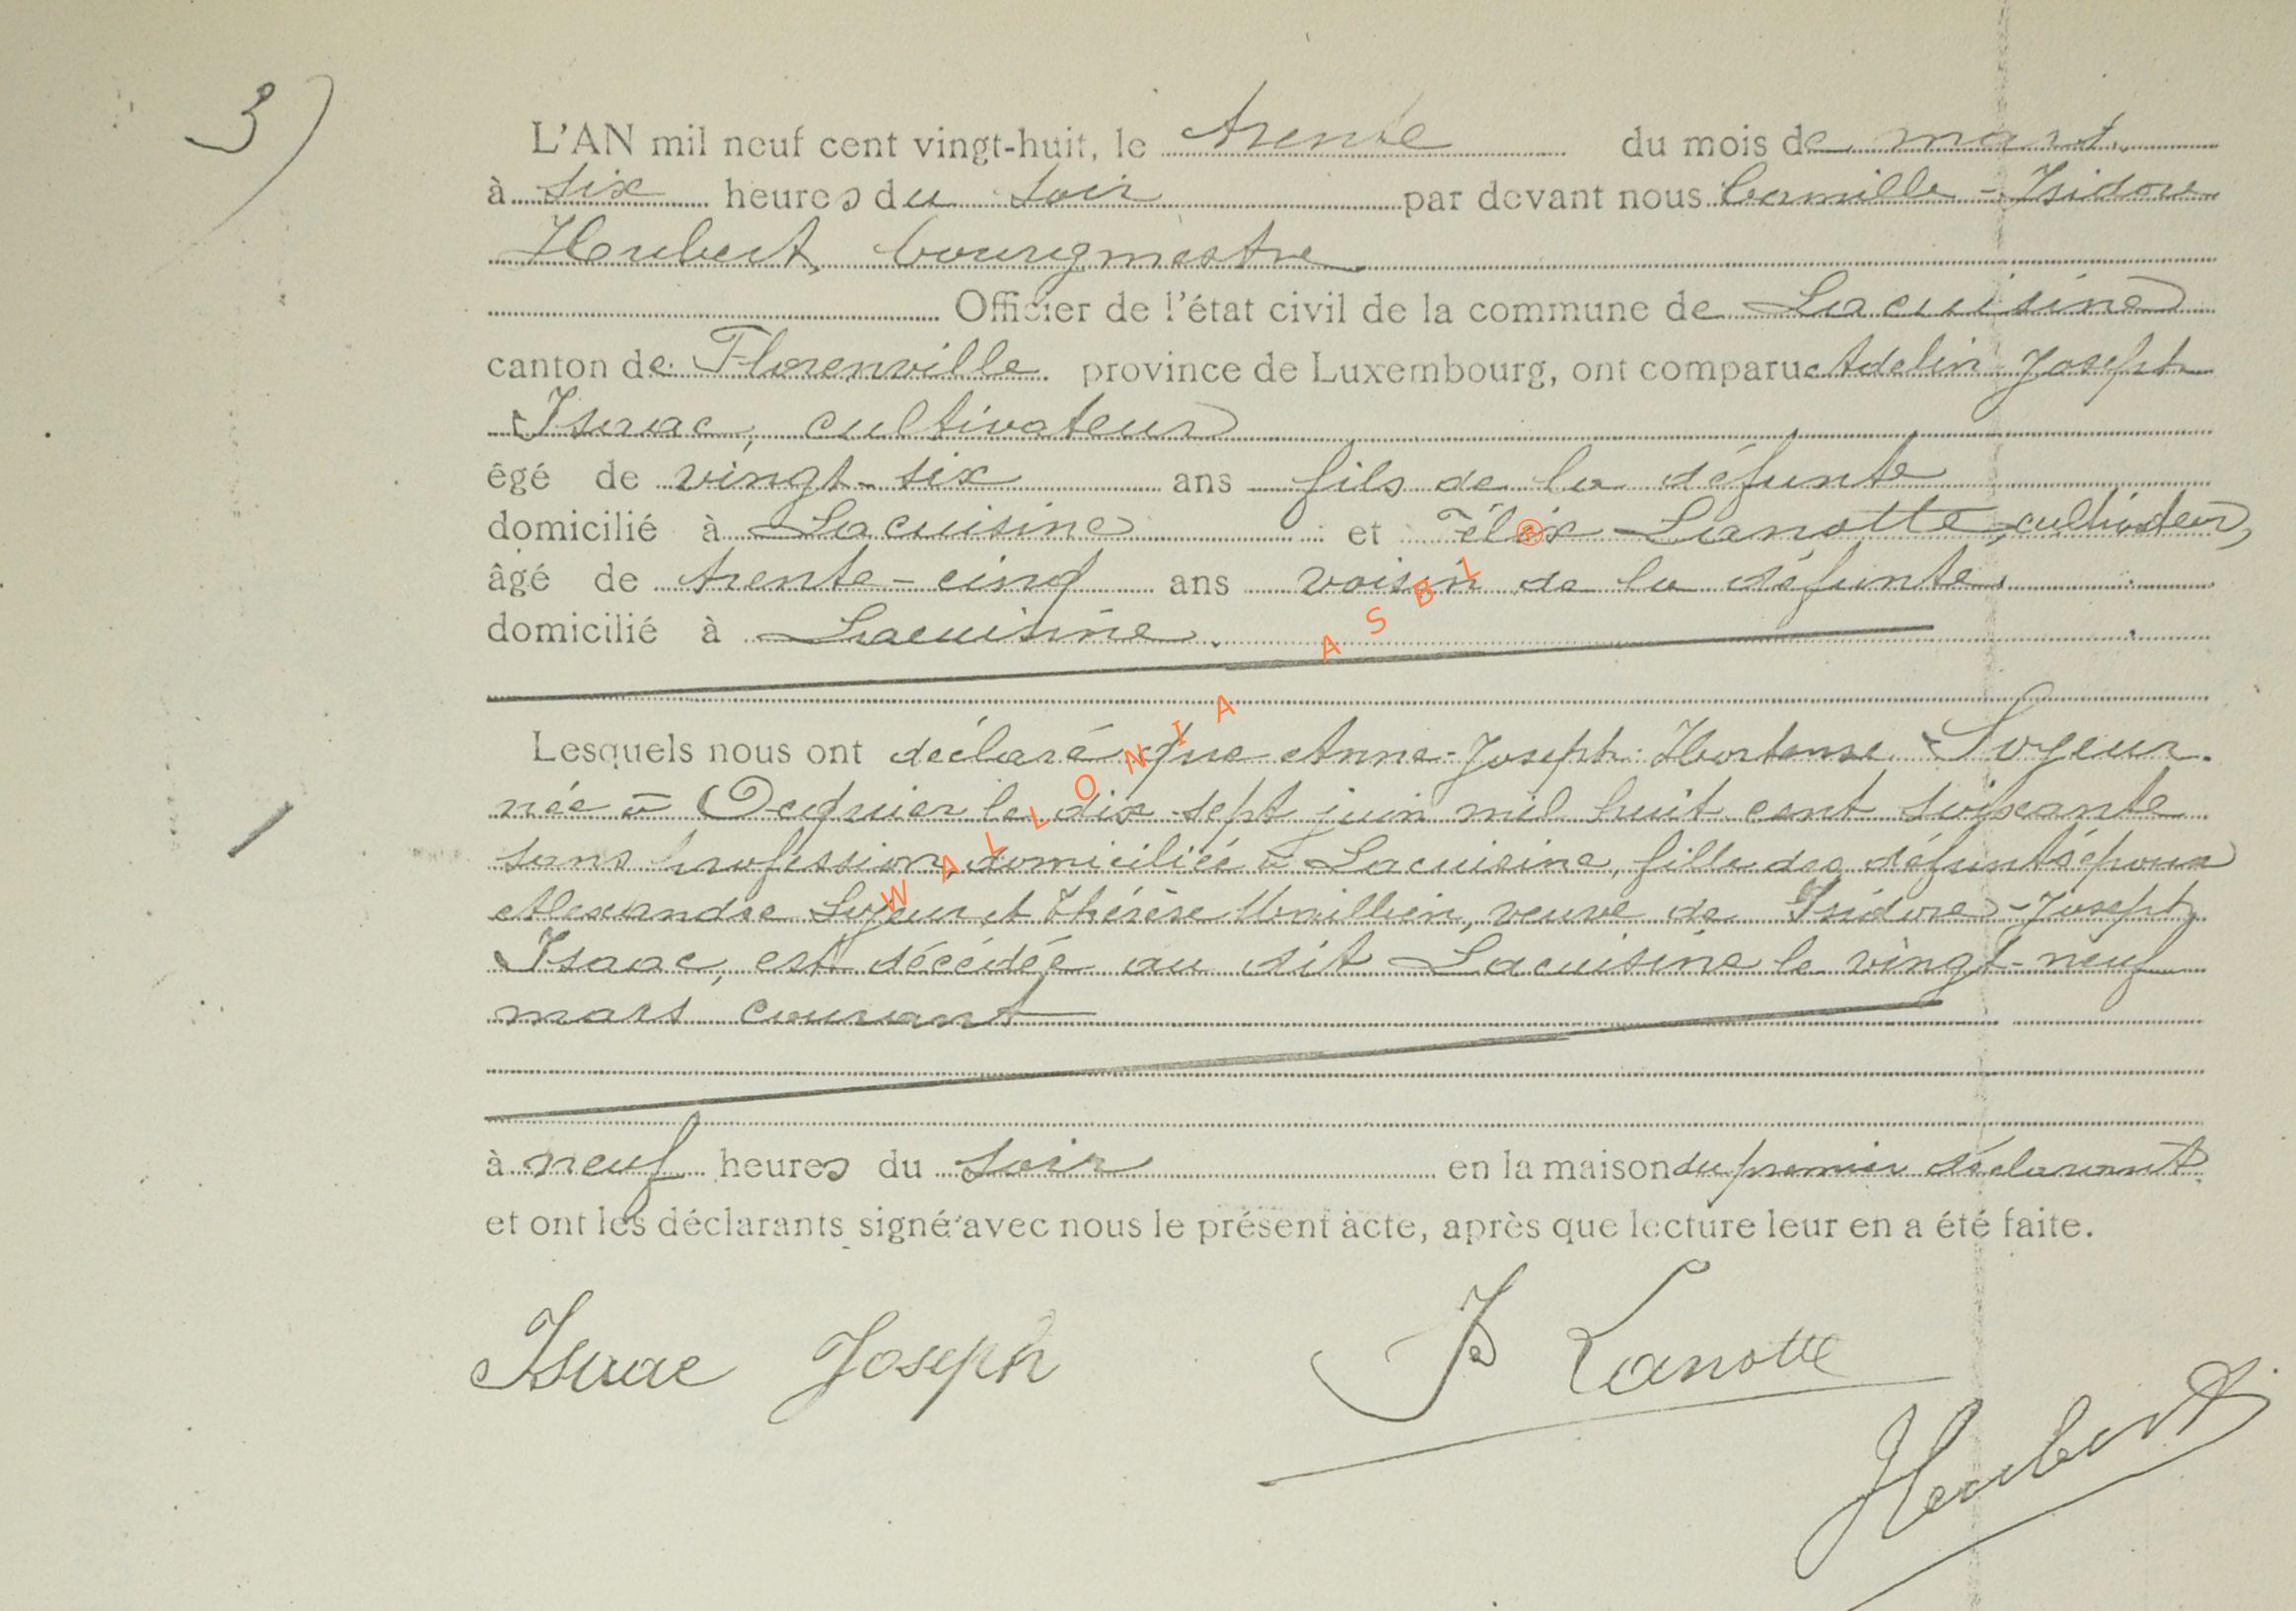 3)
L'AN mil neuf cent vingt-huit, le trente du mois de mars
à six heures du soir par devant nous Camille-Isidore
Hubert, bourgmestre
Officier de l'état civil de la commune de Lacuisine
canton de Florenville province de Luxembourg, ont comparu Adelin Joseph
Isaac, cultivateur
égé de vingt-six ans fils de la défunte
domicilié à Lacuisine et Félix Lanotte, cultivateur,
âgé de trente-cinq ans voisin de la défunte,
domicilié à Lacuisine.
Lesquels nous ont déclaré que Anne-Joseph-Hortense Soyeur.
née à Ocquier le dix-sept juin mil huit cent soixante
sans profession, domiciliée à Lacuisine, fille des défunts époux
Alexandre Soyeur et Thérèse veuve de Isidore-Joseph
Isaac, est décédée au dit Lacuisine le vingt-neuf
mars courant
à neuf heures du soir en la maison du premier déclarant
et ont les déclarants signé avec nous le présent acte, après que lecture leur en a été faite.
Isaac Joseph
F Lanotte
Hubert
WALLONIA ASBL ®